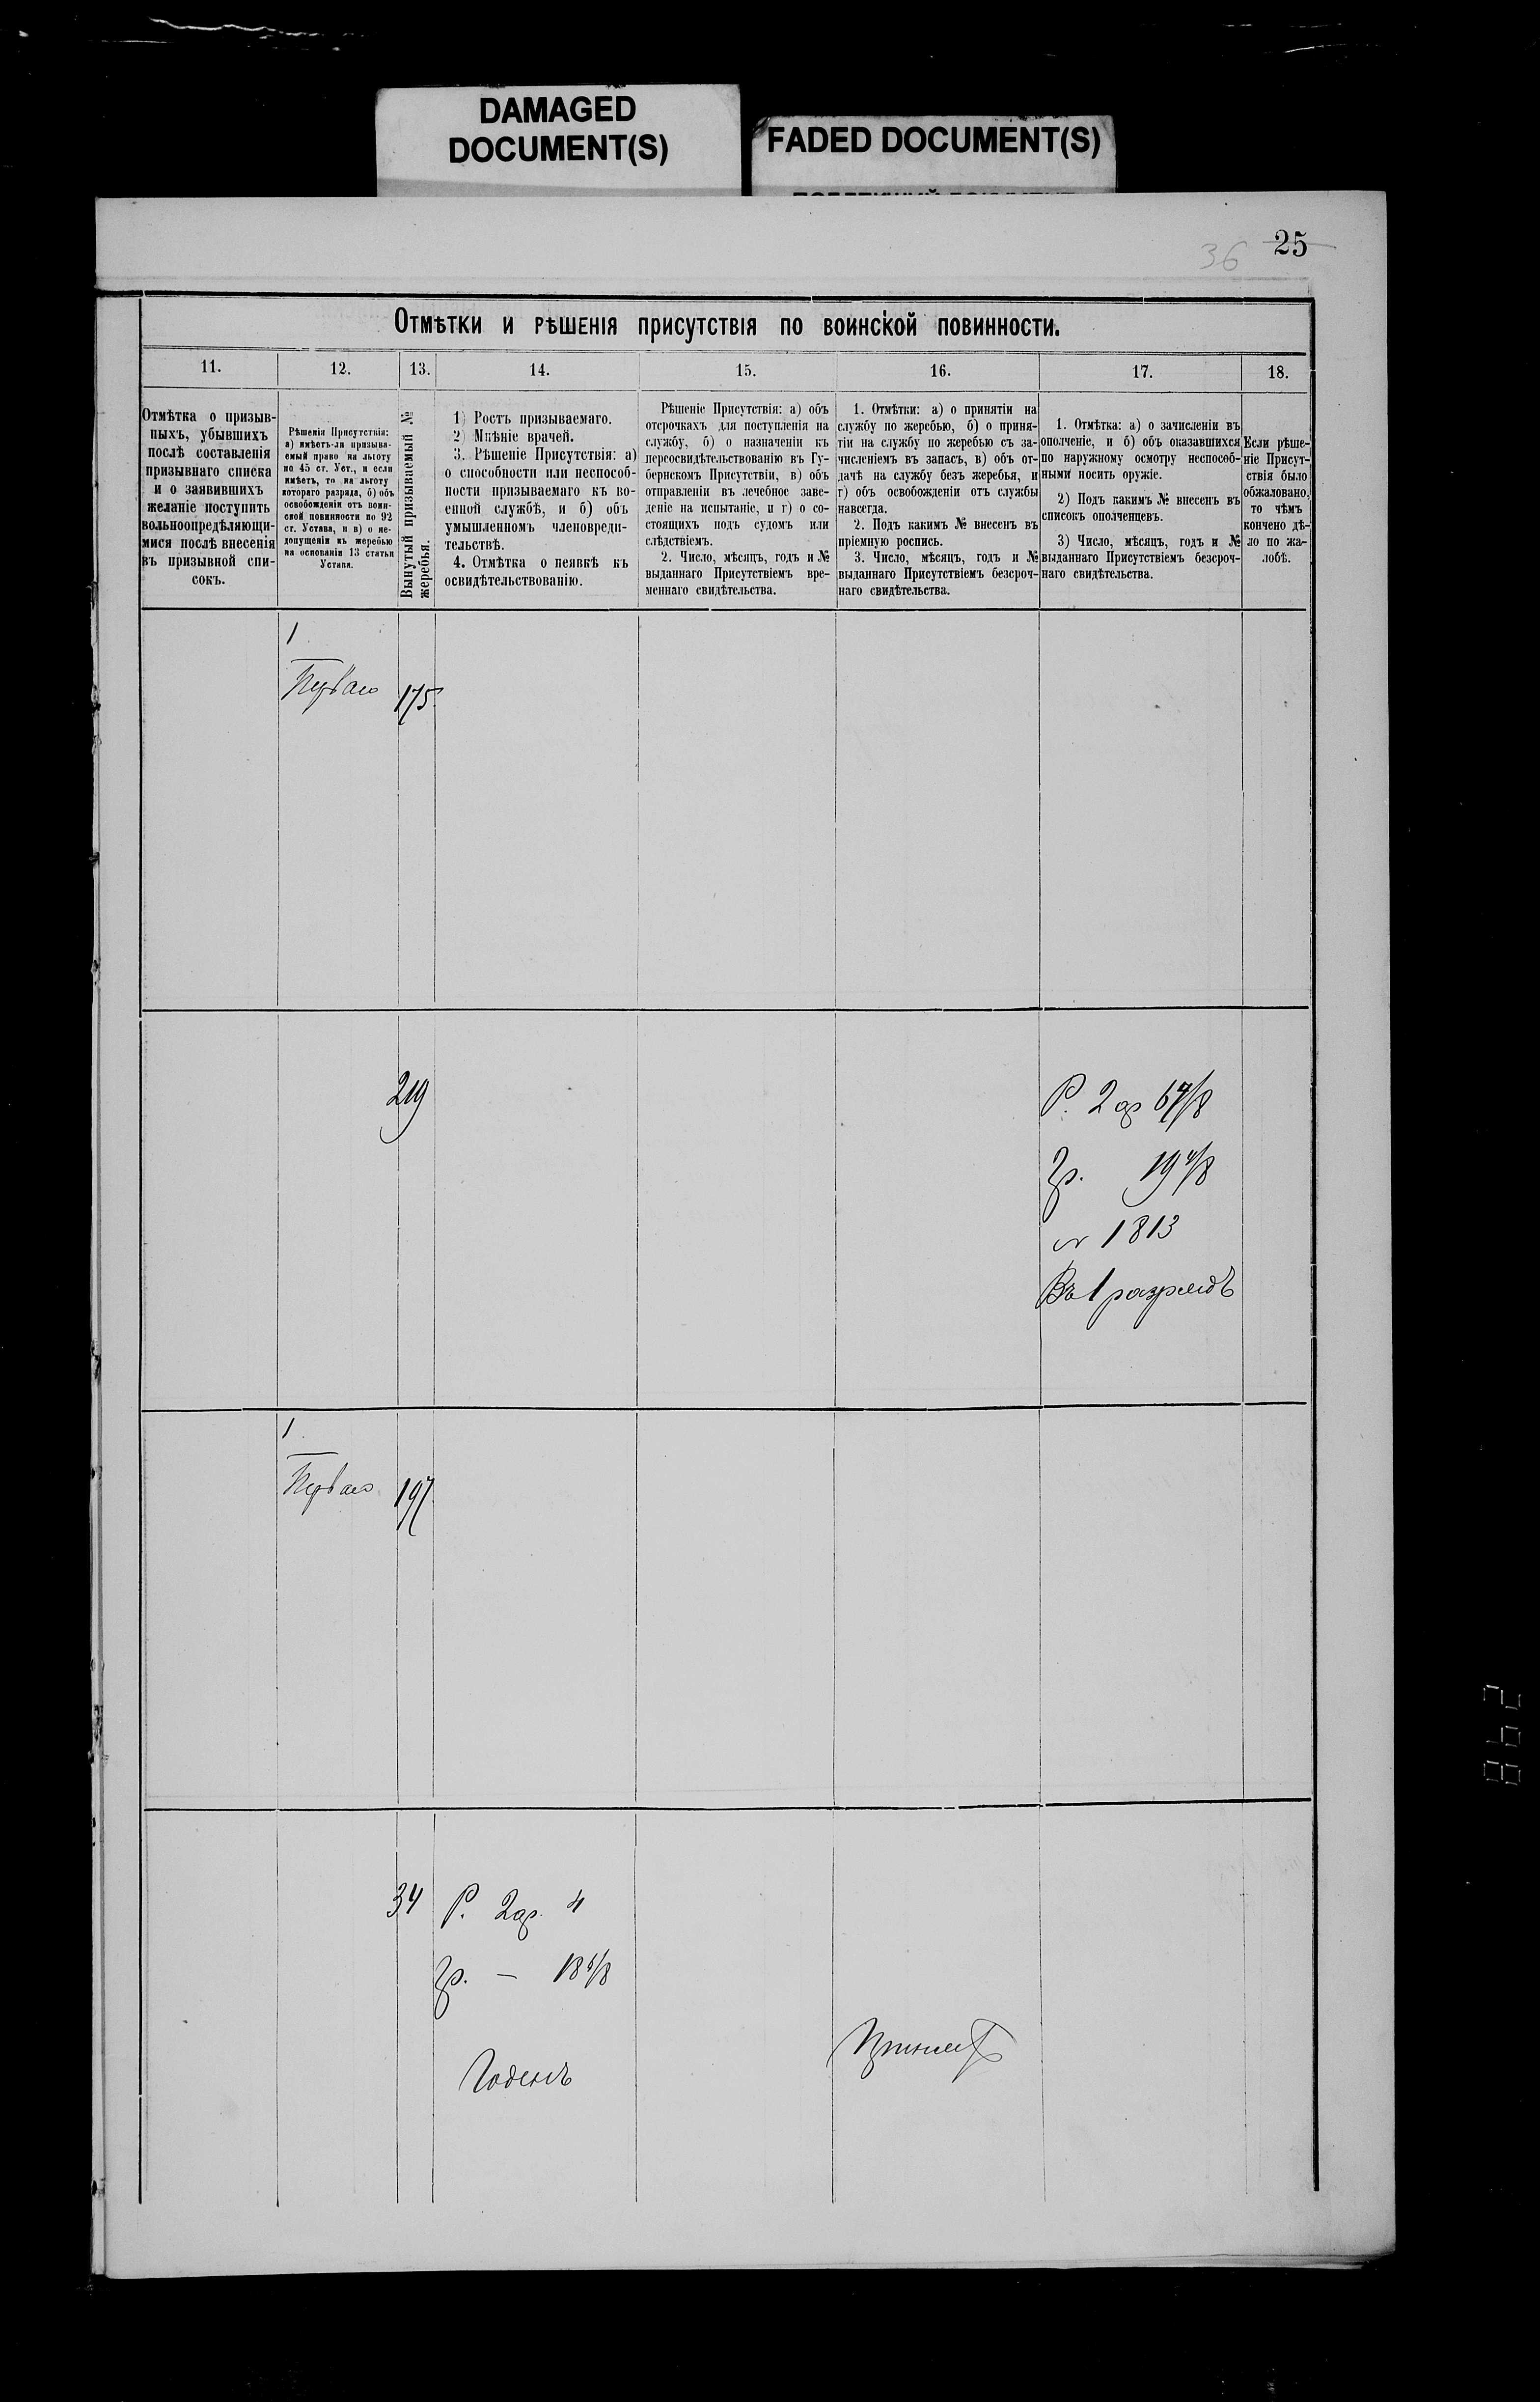 DAMAGED
DOCUMENT(S)
FADED DOCUMENT(S)
36 25
Отмѣтки и рѣшенія присутствія по воинской повинности.
11.
12.
13.
14.
15.
16.
17.
18.
Отмѣтка о призыв-
ныхъ, убывшихъ
послѣ составленія
призывнаго списка
и о заявившихъ
желаніе поступить
вольноопредѣляющи-
мися послѣ внесенія
въ призывной спи-
сокъ.
Рѣшенія Присутствія:
а) имѣетъ-ли призыва-
емый право на льготу
по 45 ст. Уст., и если
имѣетъ, то на льготу
котораго разряда, б) объ
освобожденіи отъ воин-
ской повинности по 92
ст. Устава, и в) о не-
допущеніи къ жеребью
на основаніи 13 статьи
Устава.
Вынутый призываемый №
жеребья.
1) Ростъ призываемаго.
2) Мнѣніе врачей.
3. Рѣшеніе Присутствія: а)
о способности или неспособ-
ности призываемаго къ во-
енной службѣ, и б) объ
умышленномъ членовреди-
тельствѣ.
4. Отмѣтка о неявкѣ къ
освидѣтельствованію.
Рѣшеніе Присутствія: а) объ
отсрочкахъ для поступленія на
службу, б) о назначеніи къ
переосвидѣтельствованію въ Гу-
бернскомъ Присутствіи, в) объ
отправленіи въ лечебное заве-
деніе на испытаніе, и г) о со-
стоящихъ подъ судомъ или
слѣдствіемъ.
2. Число, мѣсяцъ, годъ и №
выданнаго Присутствіемъ вре-
меннаго свидѣтельства.
1. Отмѣтки: а) о принятіи на
службу по жеребью, б) о приня-
тіи на службу по жеребью съ за-
численіемъ въ запасъ, в) объ от-
дачѣ на службу безъ жеребья, и
г) объ освобожденіи отъ службы
навсегда.
2. Подъ какимъ № внесенъ въ
пріемную роспись.
3. Число, мѣсяцъ, годъ и №
выданнаго Присутствіемъ безсроч-
наго свидѣтельства.
1. Отмѣтка: а) о зачисленіи въ
ополченіе, и б) объ оказавшихся
по наружному осмотру неспособ-
ными носить оружіе.
2) Подъ какимъ № внесенъ въ
списокъ ополченцевъ.
3) Число, мѣсяцъ, годъ и №
выданнаго Присутствіемъ безсроч-
наго свидѣтельства.
Если рѣше-
ніе Присут-
ствія было
обжаловано,
то чѣмъ
кончено дѣ-
ло по жа-
лобѣ.
1
Перваго 175
219
Р. 2 ар
гр. 19 4/8
1813
Въ 1 разрядъ
1
Перваго 197
34 Р. 2 ар. 4
гр. —
Годенъ
Принятъ
298